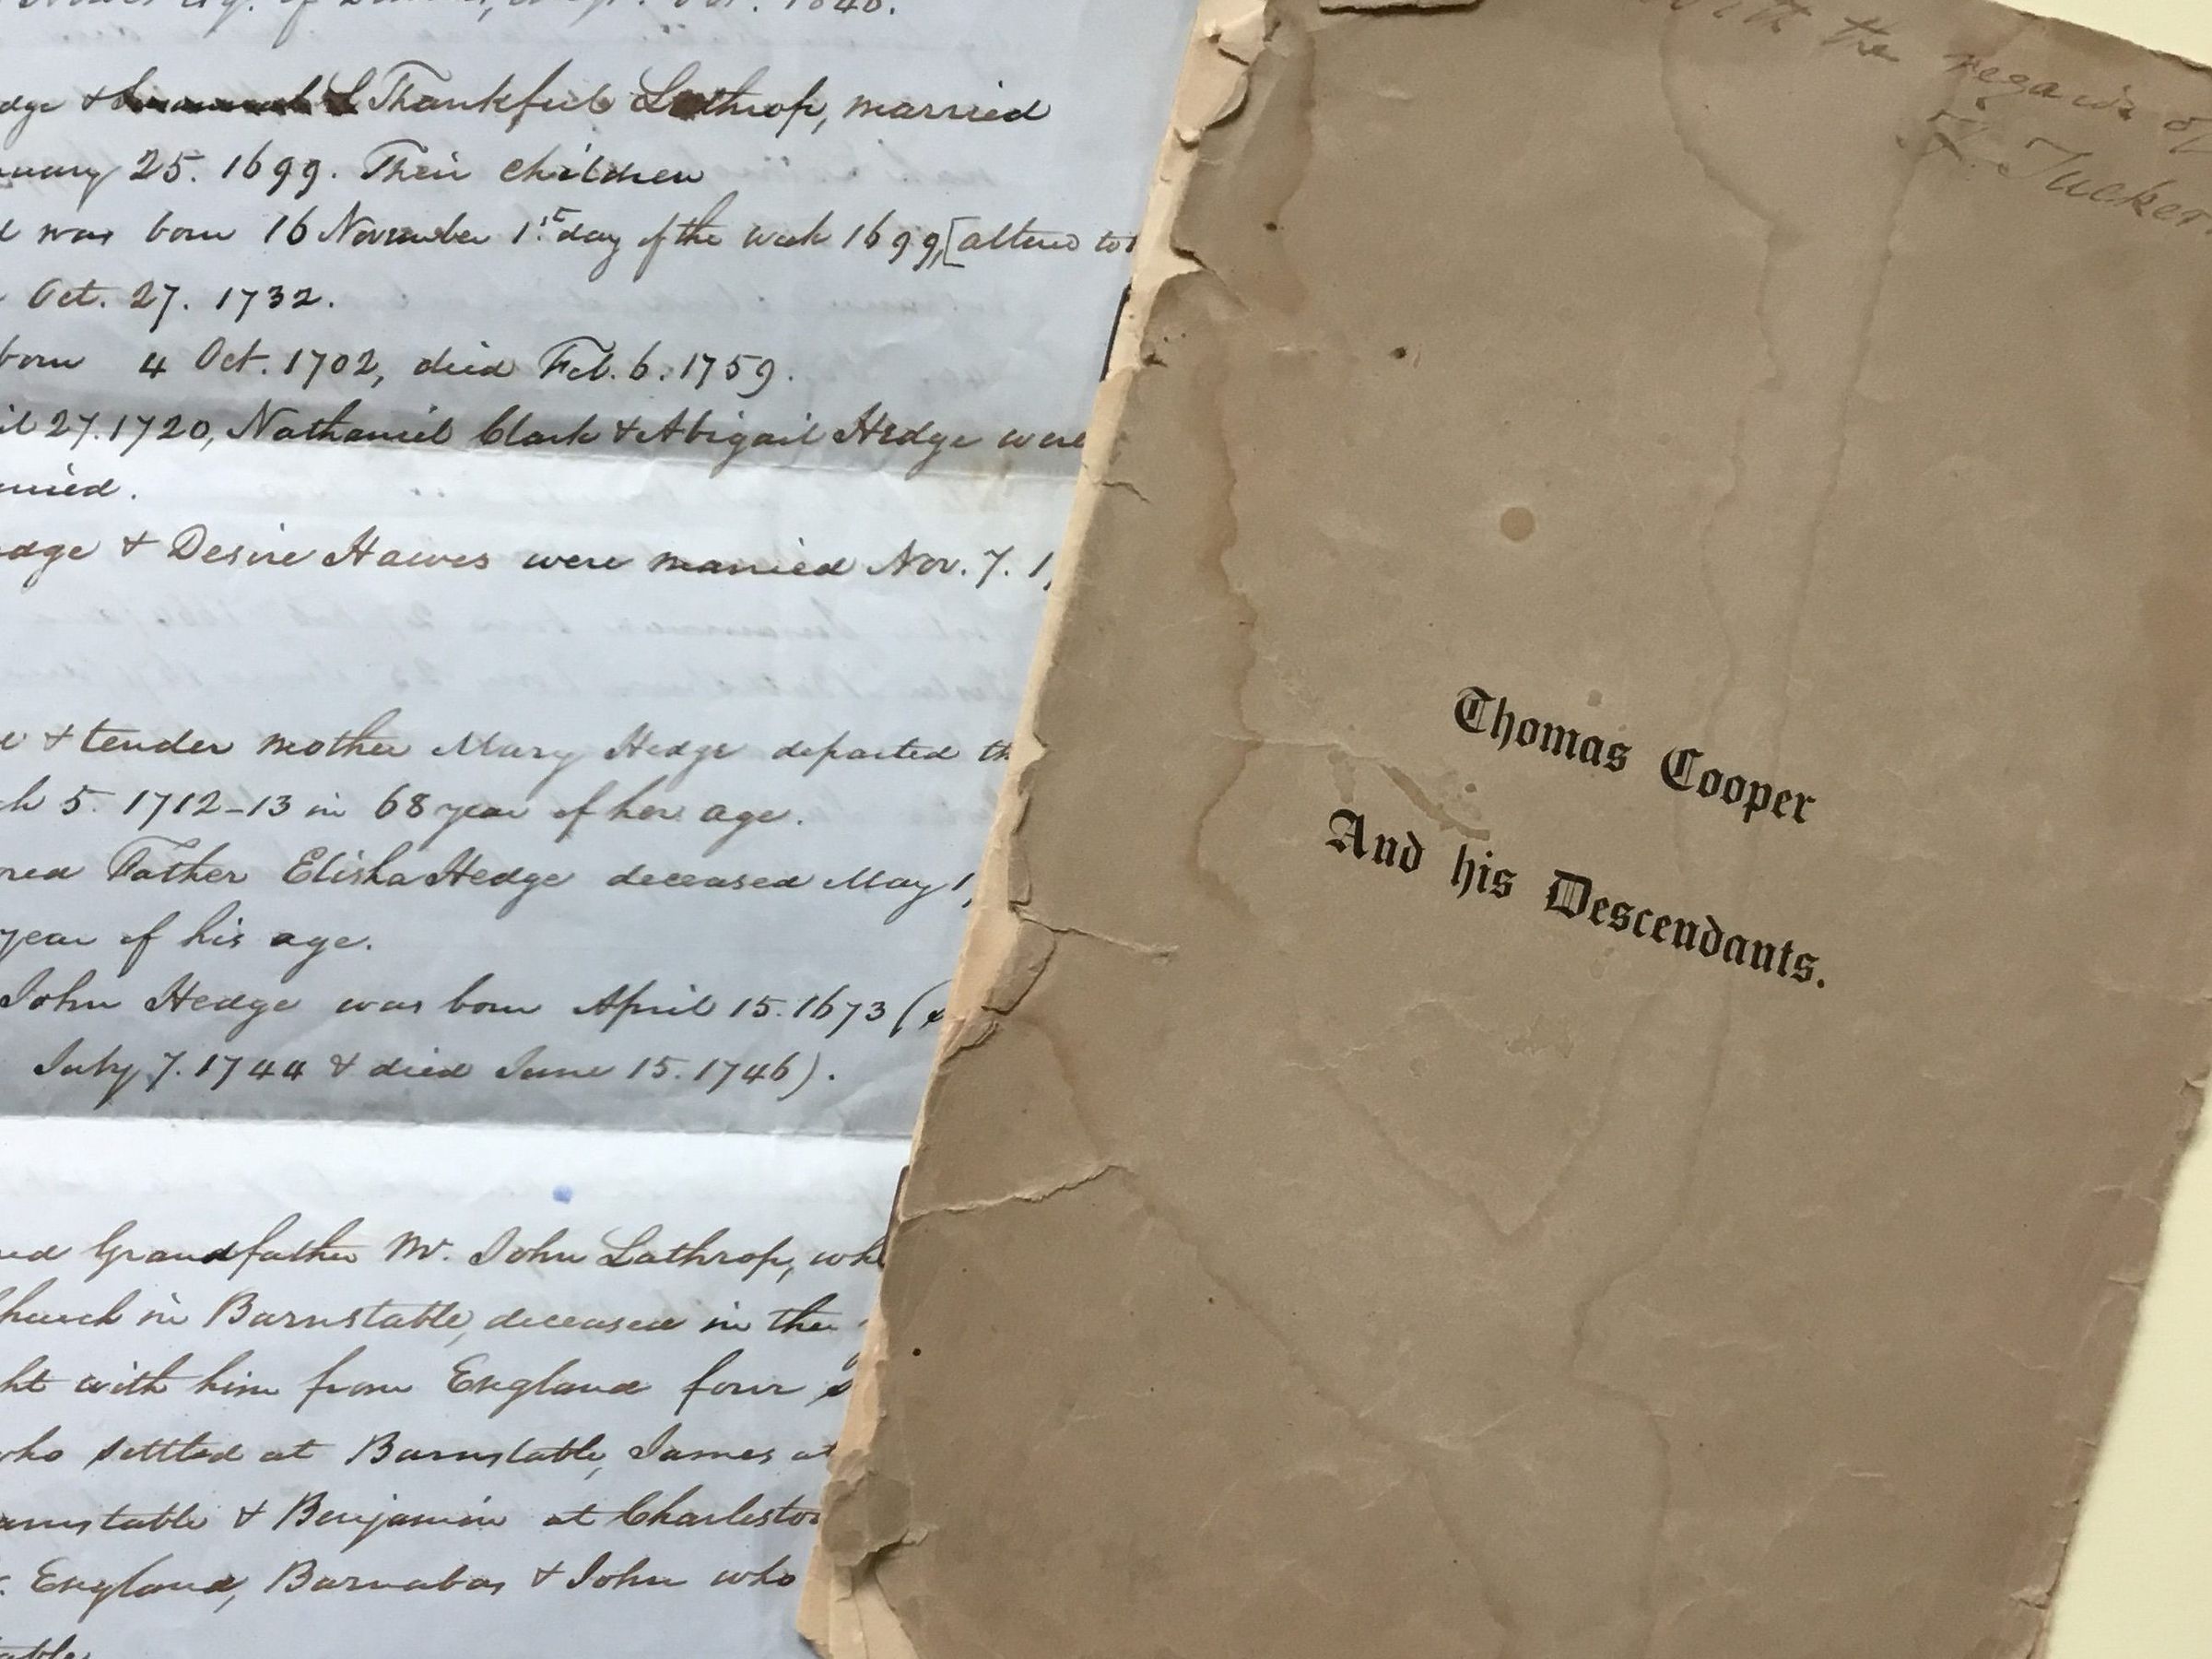 of 1840.
dge & Thankful Lothrop, married
nuary 25. 1699. Their children
d was born 16 November 1st day of the week 1699, [altered to
Oct. 27. 1732.
born 4 Oct. 1702, died Feb. 6. 1759.
il 27. 1720, Nathaniel Clark & Abigail Hedge were
rried.
edge & Desire Hawes were married Nov. 7. 1
& tender mother Mary Hedge departed th
ch 5. 1712-13 in 68 year of her age.
ored Father Elisha Hedge deceased May 1,
year of his age.
John Hedge was born April 15. 1673 (
July 7. 1744 & died June 15. 1746).
ed Grandfather Mr. John Lathrop, wh
Church in Barnstable, deceased in the
ht with him from England four
who settled at Barnstable, James at
arnstable & Benjamin at Charlesto
England, Barnabas & John who
table
with the regards of
Tucker.
Thomas Cooper
And his Descendants.